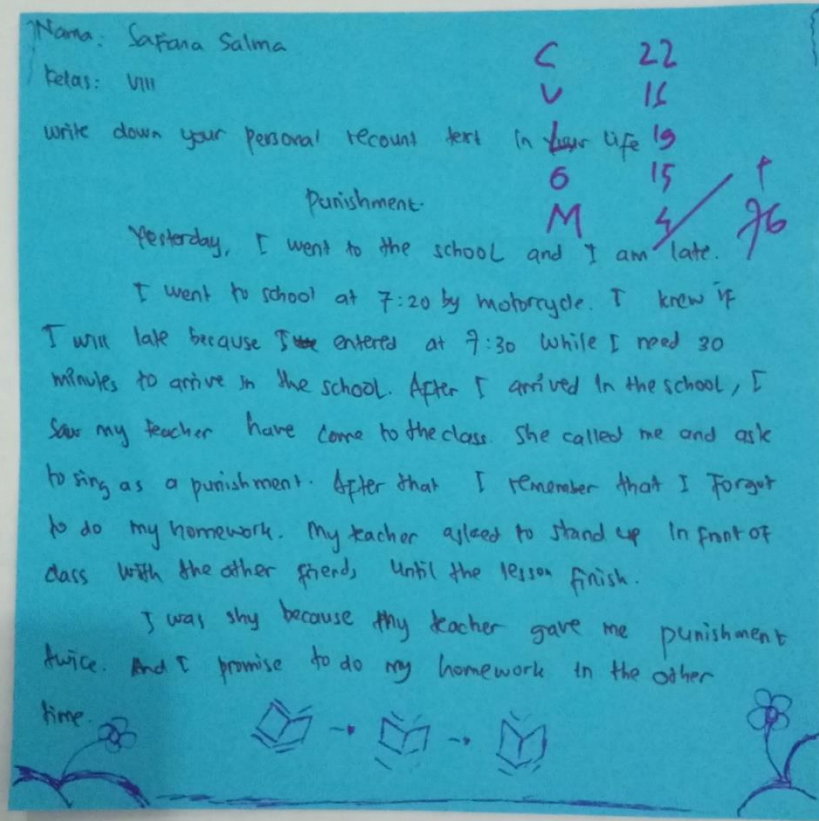 Nama: Safana Salma
Kelas: VIII
C 22
V 15
write down your personal recount text in your life 19
O 15
Punishment.
M 4
76
Yesterday, I went to the school and I am late.
I went to school at 7:20 by motorcycle. I knew if
I will late because I entered at 7:30 while I need 30
minutes to arrive in the school. After I arrived in the school, I
saw my teacher have come to the class. She called me and ask
to sing as a punishment. After that I remember that I forgot
to do my homework. My teacher asked to stand up in front of
class with the other friends until the lesson finish.
I was shy because my teacher gave me punishment
twice. And I promise to do my homework in the other
time.